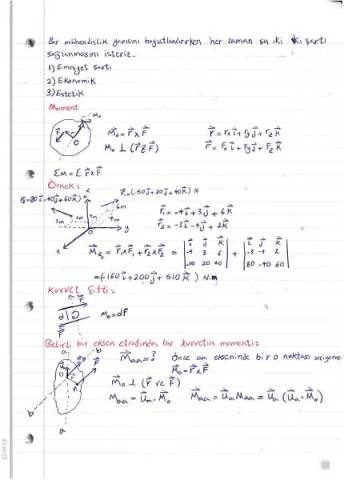 Bir mühendislik yapısını boyutlandırırken her zaman şu iki şartı
sağlanmasını isteriz.
1) Emniyet şartı
2) Ekonomik
3) Estetik
Moment
M₀ = r⃗ x F⃗
M₀ ⊥ (r⃗ F⃗)
r⃗ = rₓi⃗ + r_yj⃗ + r_zk⃗
F⃗ = Fₓi⃗ + F_yj⃗ + F_zk⃗
ΣM = Σ r⃗ x F⃗
Örnek:
N
r⃗₁ = -4i⃗ + 3j⃗ + 6k⃗
r⃗₂ = -3i⃗ - 4j⃗ + 2k⃗
= r⃗₁ x F⃗₁ + r⃗₂ x F⃗₂ =
i⃗ j⃗ k⃗
-4 3 6
20 40
+
i⃗ j⃗ k⃗
-3 -4 2
60
i⃗ + 200j⃗ + 510k⃗) N.m
Kuvvet Çifti:
M₀ = dF
Belirli bir eksen etrafında bir kuvvetin momenti:
M⃗aa = ?
Önce aa ekseninde bir o noktası seçiyoruz
M⃗₀ = r⃗ x F⃗
M⃗₀ ⊥ (r⃗ ve F⃗)
Maa = U⃗a . M⃗₀
M⃗aa = U⃗a Maa = U⃗a (U⃗a . M⃗₀)